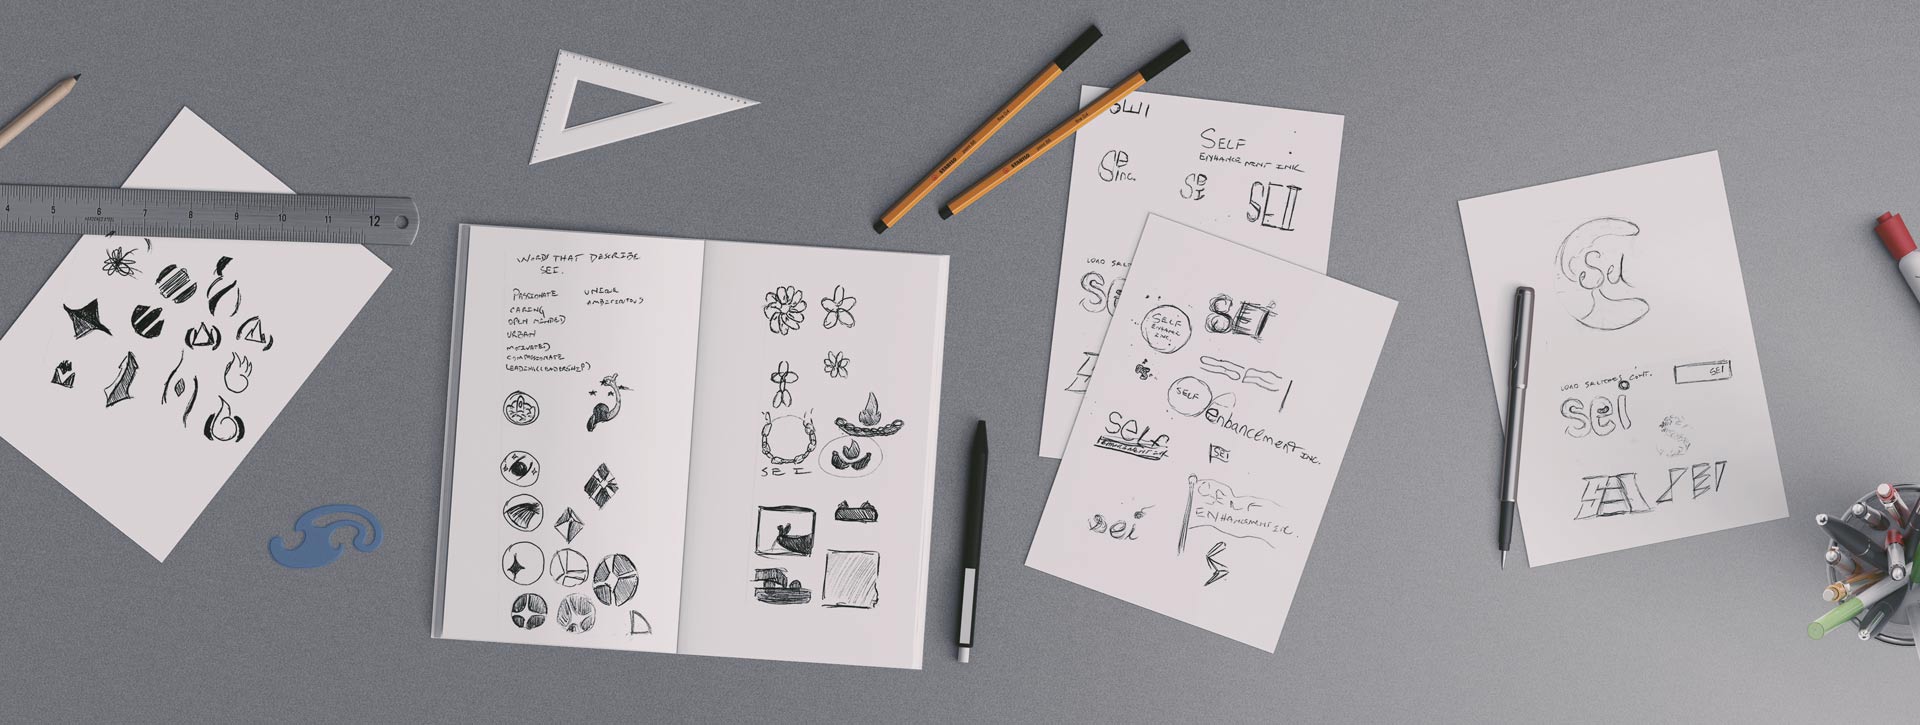 4 5 6 7 8 9 10 11 12
WORD THAT DESCRIBE
SEI.
PASSIONATE
CARING
OPEN MINDED
URBAN
MOTIVATED
COMPASSIONATE
LEADING(LEADERSHIP)
UNIQUE
AMBITIOUS
SEI
STABILO
STABILO
SELF
ENHANCEMENT INK
SEinc.
SEI
SEI
SELF
ENHANC
INK.
SEI
SELF
enhancement INC.
self
SEI
sei
SELF
ENHANCEMENT INC.
Sei
SEI
sei
SEI